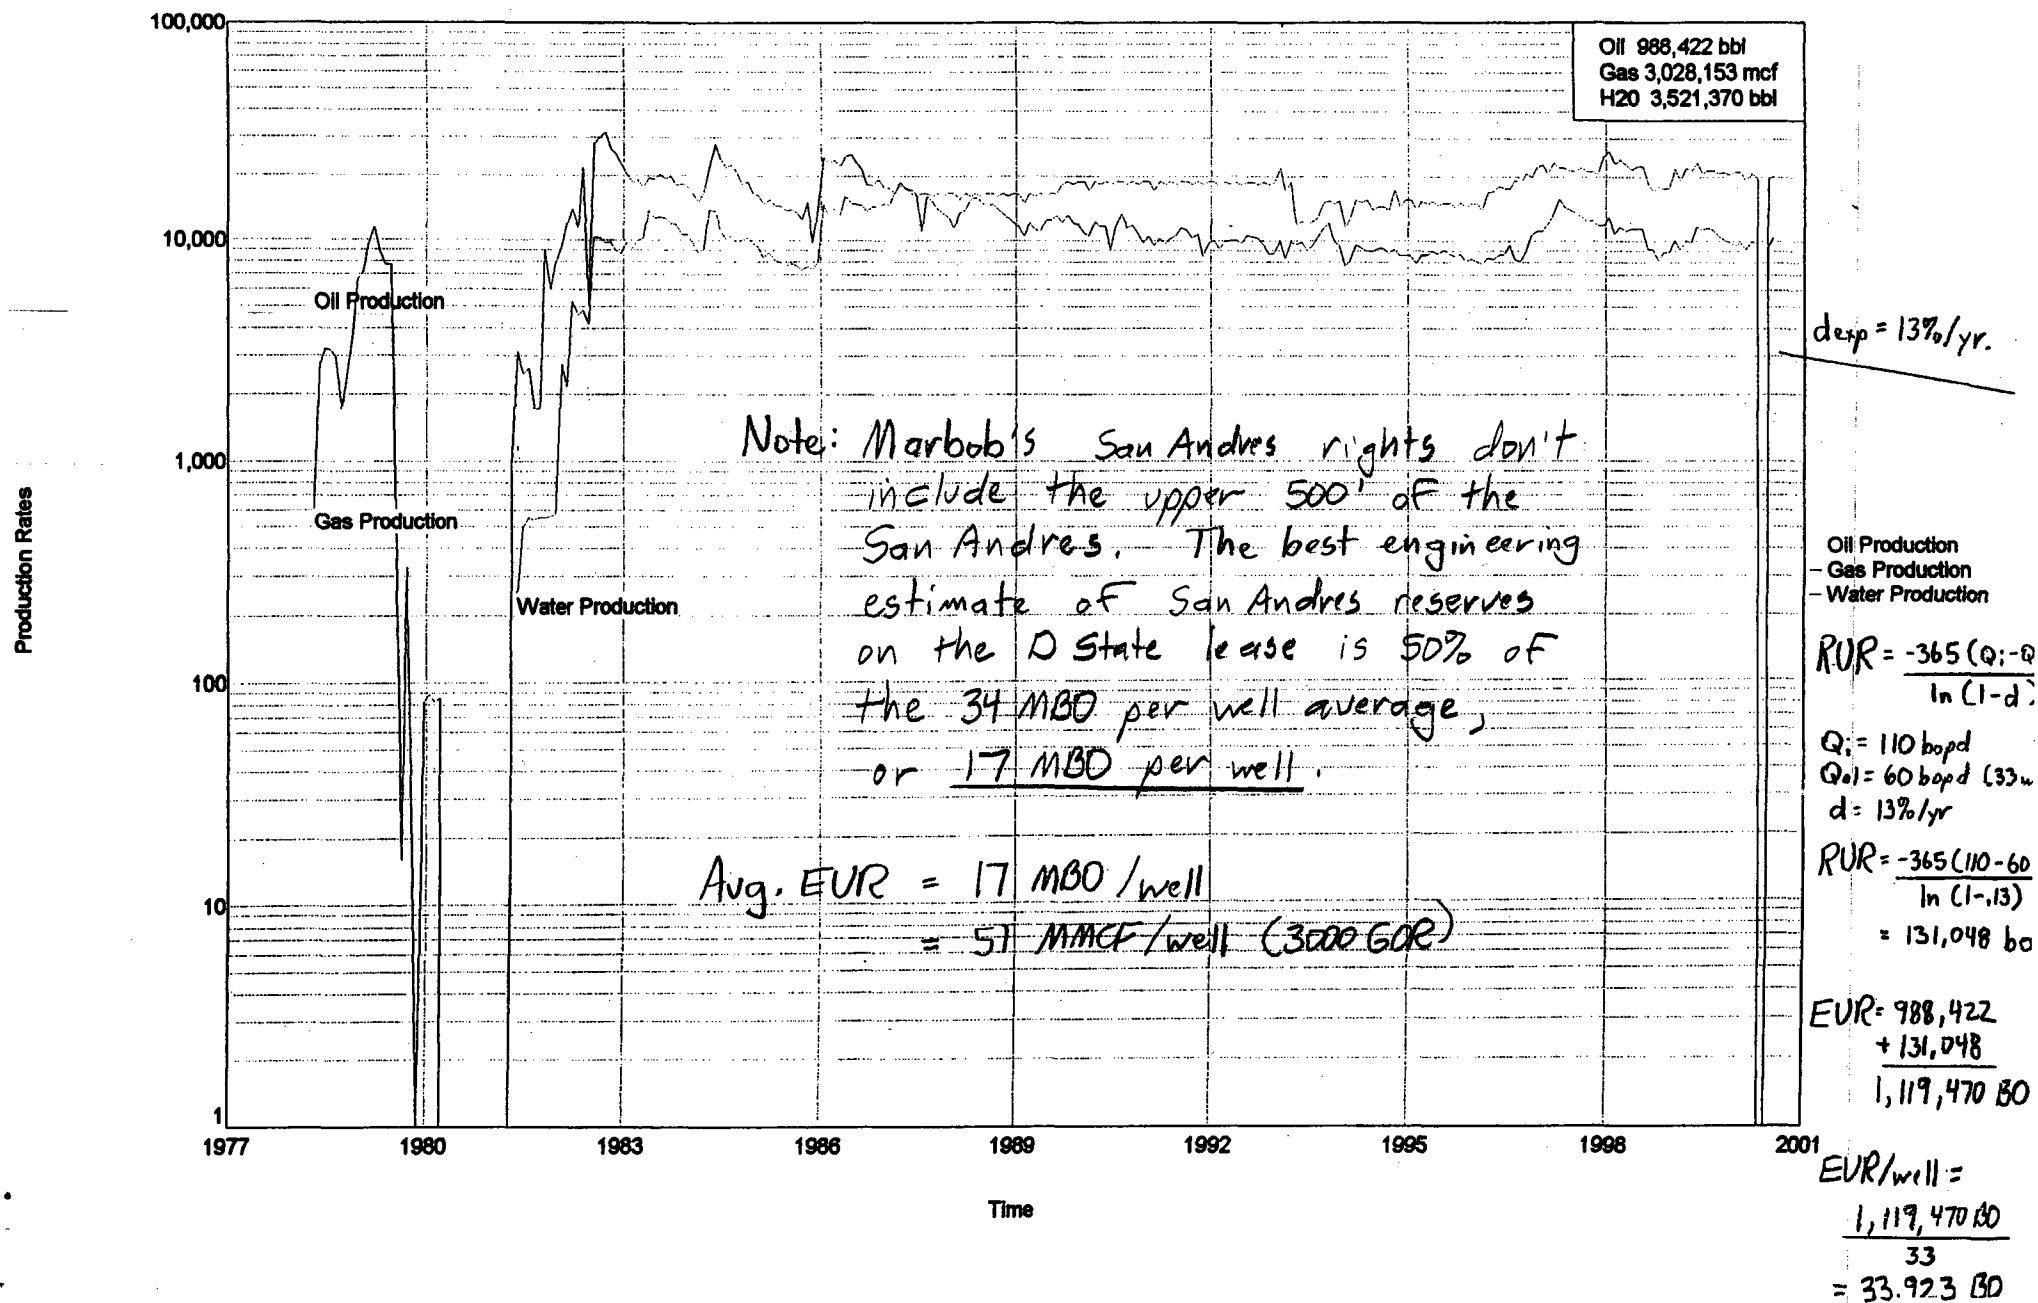 100,000
10,000
1,000
100
10
1
Production Rates
1977
1980
1983
1986
1989
1992
1995
1998
2001
Time
Oil 988,422 bbl
Gas 3,028,153 mcf
H20 3,521,370 bbl
Oil Production
Gas Production
Water Production
Note: Marbob's San Andres rights don't
include the upper 500' of the
San Andres. The best engineering
estimate of San Andres reserves
on the D State lease is 50% of
the 34 MBO per well average,
or 17 MBO per well.
Avg. EUR = 17 MBO/well
= 51 MMCF/well (3000 GOR)
dexp = 13%/yr.
Oil Production
Gas Production
Water Production
RUR = -365 (Qi-Q
ln (1-d)
Qi = 110 bopd
Qal = 60 bopd (33w
d = 13%/yr
RUR = -365 (110-60
ln (1-.13)
= 131,048 bo
EUR = 988,422
+ 131,048
1,119,470 BO
EUR/well =
1,119,470 BO
33
= 33.923 BO